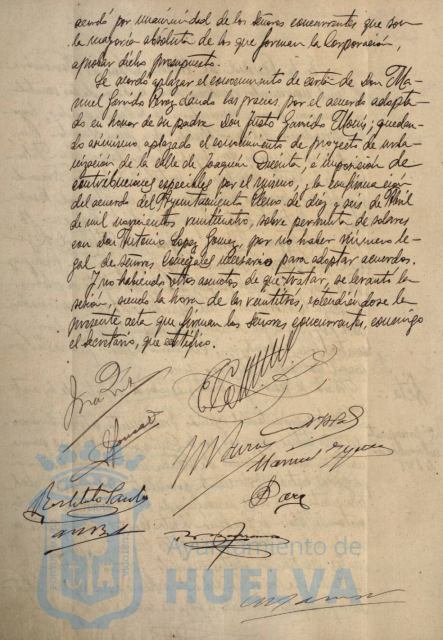 acordó por unanimidad de los señores concurrentes que son
la mayoría absoluta de los que forman la Corporación,
aprobar dicho presupuesto.
Se acordó aplazar el conocimiento de carta de Don Ma-
nuel Garrido Perez dando las gracias por el acuerdo adopta-
do en honor de su padre Don Justo Garrido; quedan-
do asimismo aplazado el conocimiento de proyecto de urba-
nización de la calle de Joaquín Dicenta, é imposición de
contribuciones especiales por el mismo, y la confirmación
del acuerdo del Ayuntamiento Pleno de diez y seis de Abril
de mil novecientos veinticuatro, sobre permuta de solares
con Don Antonio Lopez Gomez, por no haber número le-
gal de señores Concejales necesario para adoptar acuerdos.
Y no habiendo otros asuntos de que tratar, se levantó la
sesión, siendo la hora de las veintitres, extendiéndose la
presente acta que firman los señores concurrentes, conmigo
el secretario, que certifico.
Manuel
Ayuntamiento de
HUELVA